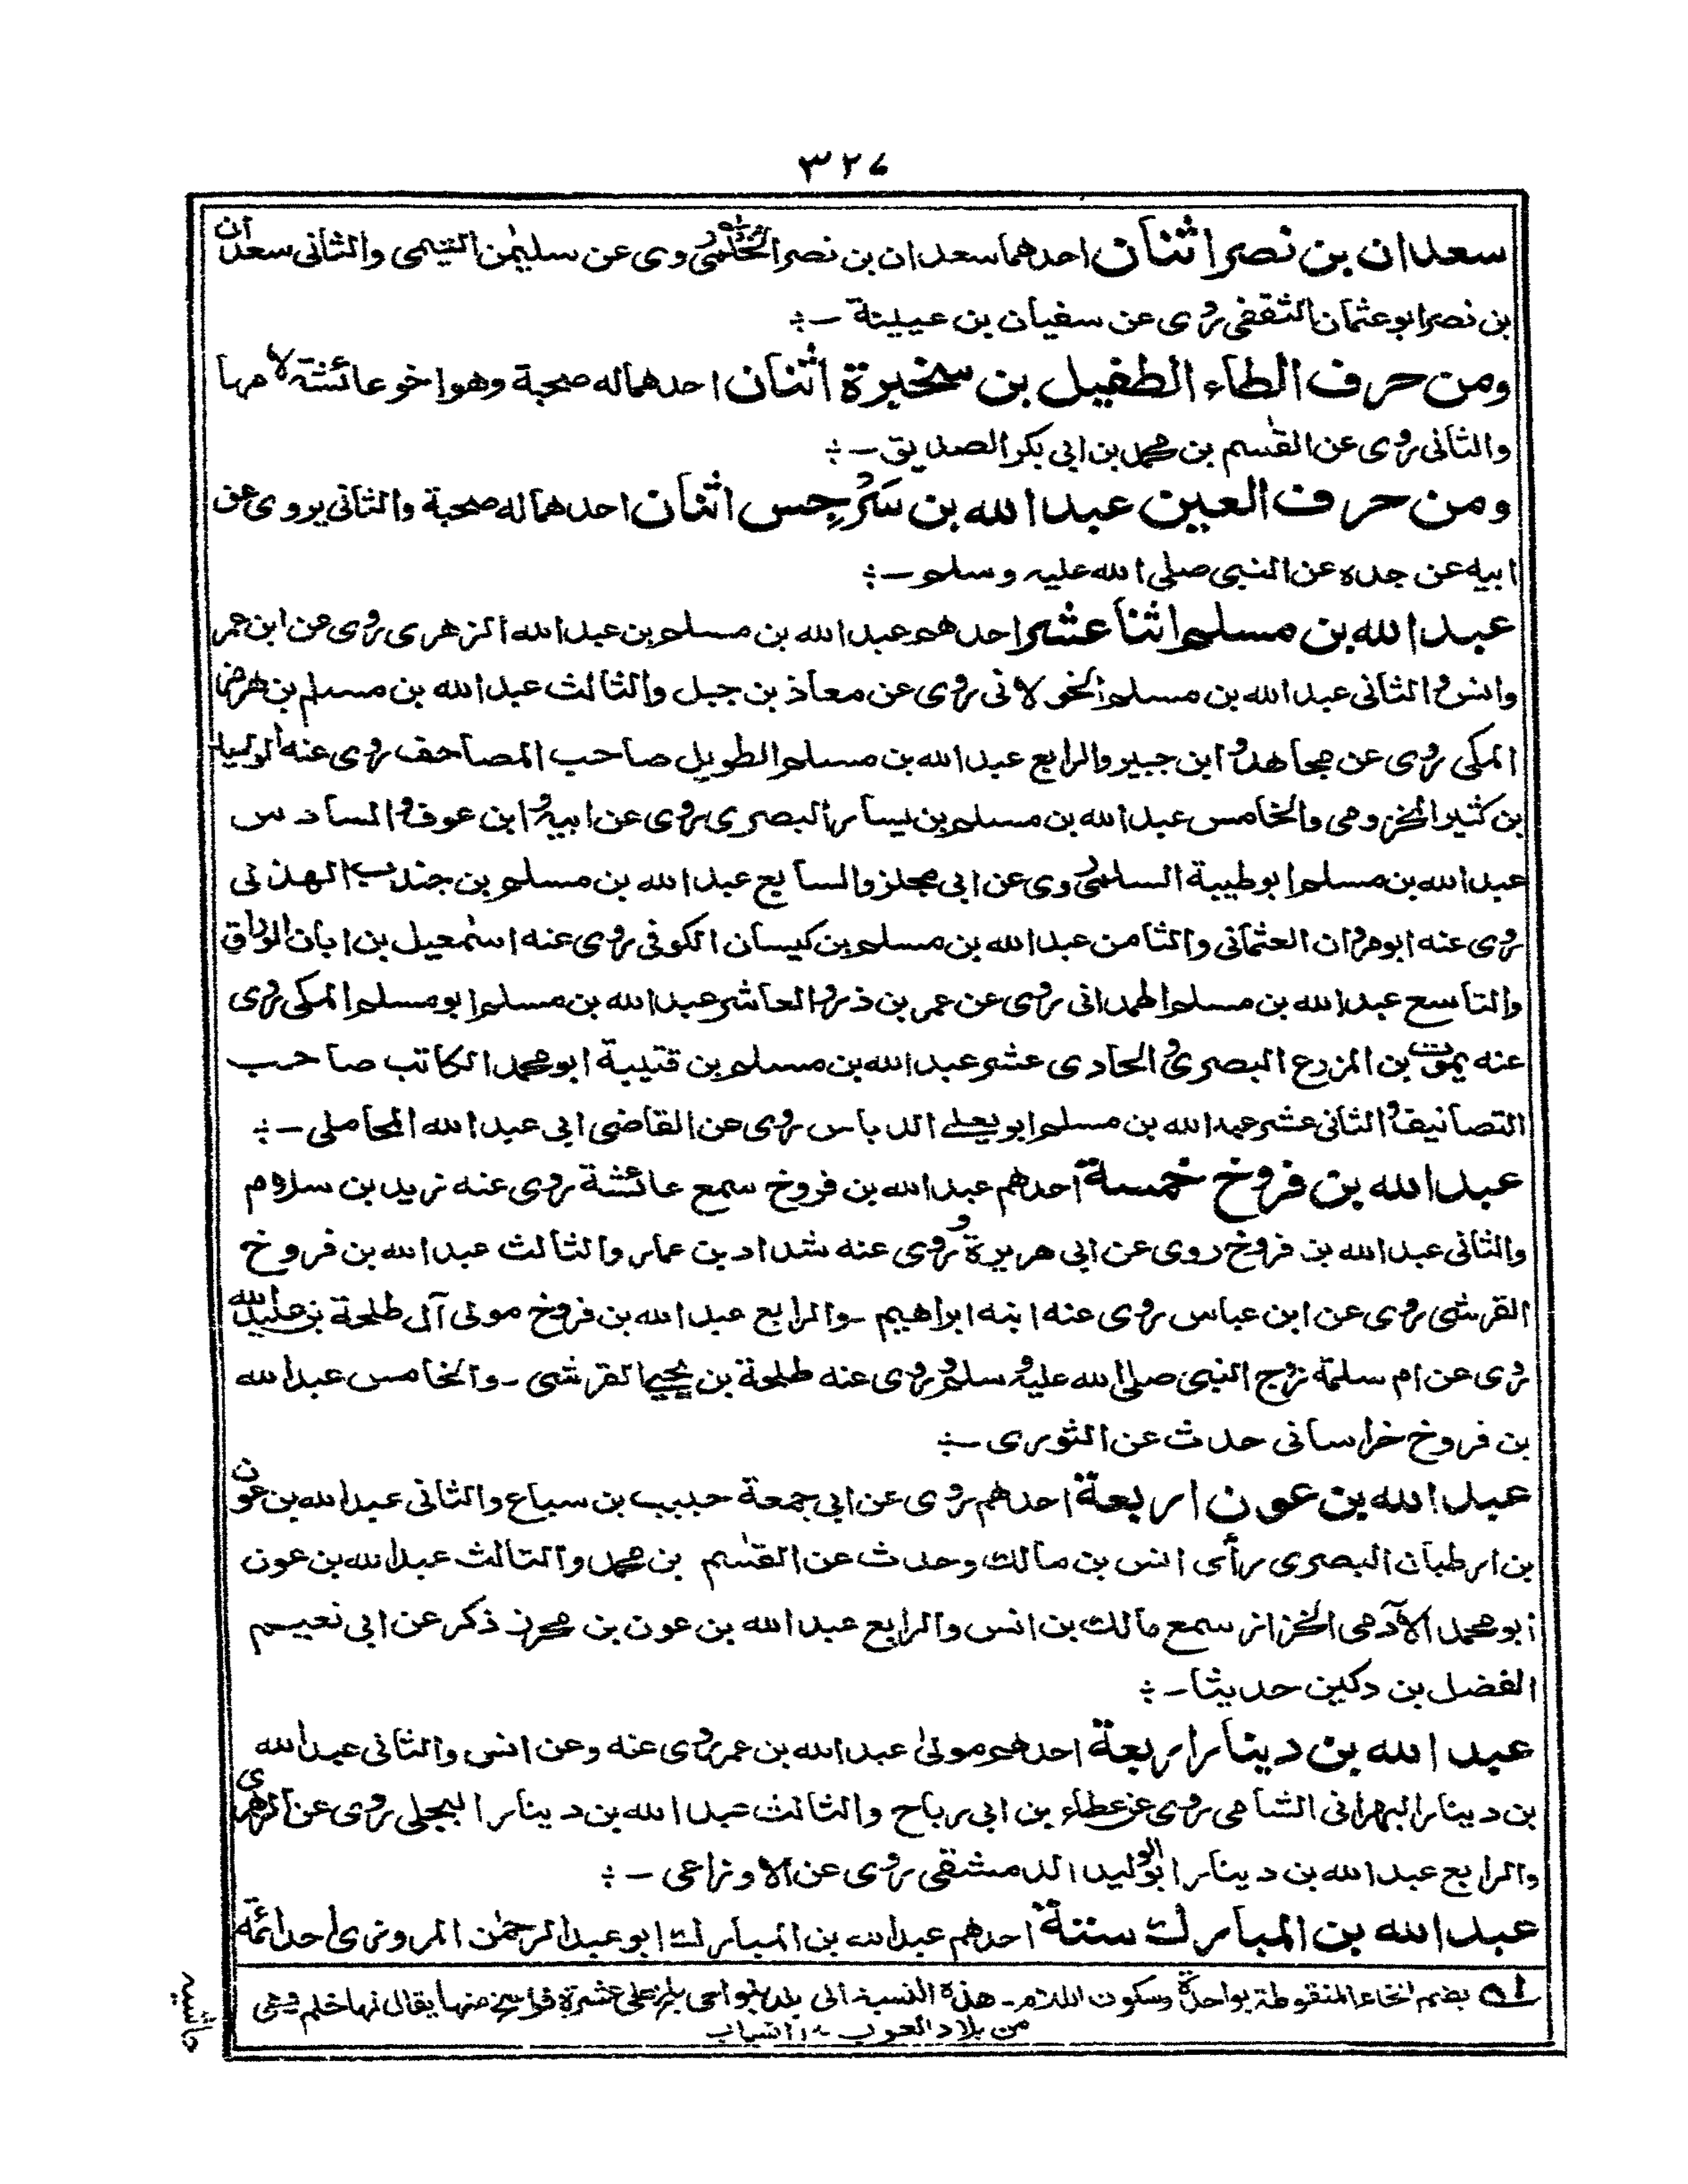 ٣٢٧
سعدان بن نصر اثنان احدهما سعدان بن نصر الخلمی روی عن سلیمٰن التیمی والثانی سعدان
بن نصر ابو عثمان الثقفی روی عن سفیان بن عیینة ـ
ومن حرف الطاء الطفیل بن سخبرة اثنان احدهما له صحبة وهو اخو عائشة لامها
والثانی روی عن القٰسم بن محمد بن ابی بکر الصدیق ـ
ومن حرف العین عبد الله بن سَرْجِس اثنان احدهما له صحبة والثانی یروی عن
ابیه عن جده عن النبی صلی الله علیه وسلم ـ
عبد الله بن مسلم اثنا عشر احدهم عبد الله بن مسلم بن عبد الله الزهری روی عن ابن عمر
وانس والثانی عبد الله بن مسلم الخولانی روی عن معاذ بن جبل والثالث عبد الله بن مسلم بن هرمز
المکی روی عن مجاهد وابن جبیر والرابع عبد الله بن مسلم الطویل صاحب المصاحف روی عنه الولید
بن کثیر المخزومی والخامس عبد الله بن مسلم بن یسار البصری روی عن ابیه وابن عوف والسادس
عبد الله بن مسلم ابو طیبة السلمی روی عن ابی مجلز والسابع عبد الله بن مسلم بن جندب الهذلی
روی عنه ابو مروان العثمانی والثامن عبد الله بن مسلم بن کیسان الکوفی روی عنه اسمٰعیل بن ابان الوراق
والتاسع عبد الله بن مسلم الهمدانی روی عن عمر بن ذر والعاشر عبد الله بن مسلم ابو مسلم المکی روی
عنه یموت بن المزرع البصری والحادی عشر عبد الله بن مسلم بن قتیبة ابو محمد الکاتب صاحب
التصانیف والثانی عشر عبد الله بن مسلم ابو یعلے الدباس روی عن القاضی ابی عبد الله المحاملی ـ
عبد الله بن فروخ خمسة احدهم عبد الله بن فروخ سمع عائشة روی عنه زید بن سلام
والثانی عبد الله بن فروخ روی عن ابی هریرة و روی عنه شداد بن عمار والثالث عبد الله بن فروخ
القرشی روی عن ابن عباس روی عنه ابنه ابراهیم ـ والرابع عبد الله بن فروخ مولی آل طلحة بن عبید الله
روی عن ام سلمة زوج النبی صلی الله علیه وسلم وروی عنه طلحة بن یحییٰ القرشی ـ والخامس عبد الله
بن فروخ خراسانی حدث عن الثوری ـ
عبد الله بن عون اربعة احدهم روی عن ابی جمعة حبیب بن سباع والثانی عبد الله بن عون
بن ارطبان البصری رأی انس بن مالک وحدث عن القٰسم بن محمد والثالث عبد الله بن عون
ابو محمد الآدمی الخزاز سمع مالک بن انس والرابع عبد الله بن عون بن محرز ذکر عن ابی نعیم
الفضل بن دکین حدیثا ـ
عبد الله بن دینار اربعة احدهم مولیٰ عبد الله بن عمر روی عنه وعن انس والثانی عبد الله
بن دینار البهرانی الشامی روی عن عطاء بن ابی رباح والثالث عبد الله بن دینار البجلی روی عن الزهری
والرابع عبد الله بن دینار ابو الولید الدمشقی روی عن الاوزاعی ـ
عبد الله بن المبارک ستة احدهم عبد الله بن المبارک ابو عبد الرحمٰن المروزی احد ائمة
لہ بضم الخاء المنقوطة بواحدة وسکون اللام ـ هذه النسبة الی بلد بنواحی بلخ علی عشرة فراسخ منها یقال لها خلم وهی
من بلاد العرب ـ انساب
حاشیہ